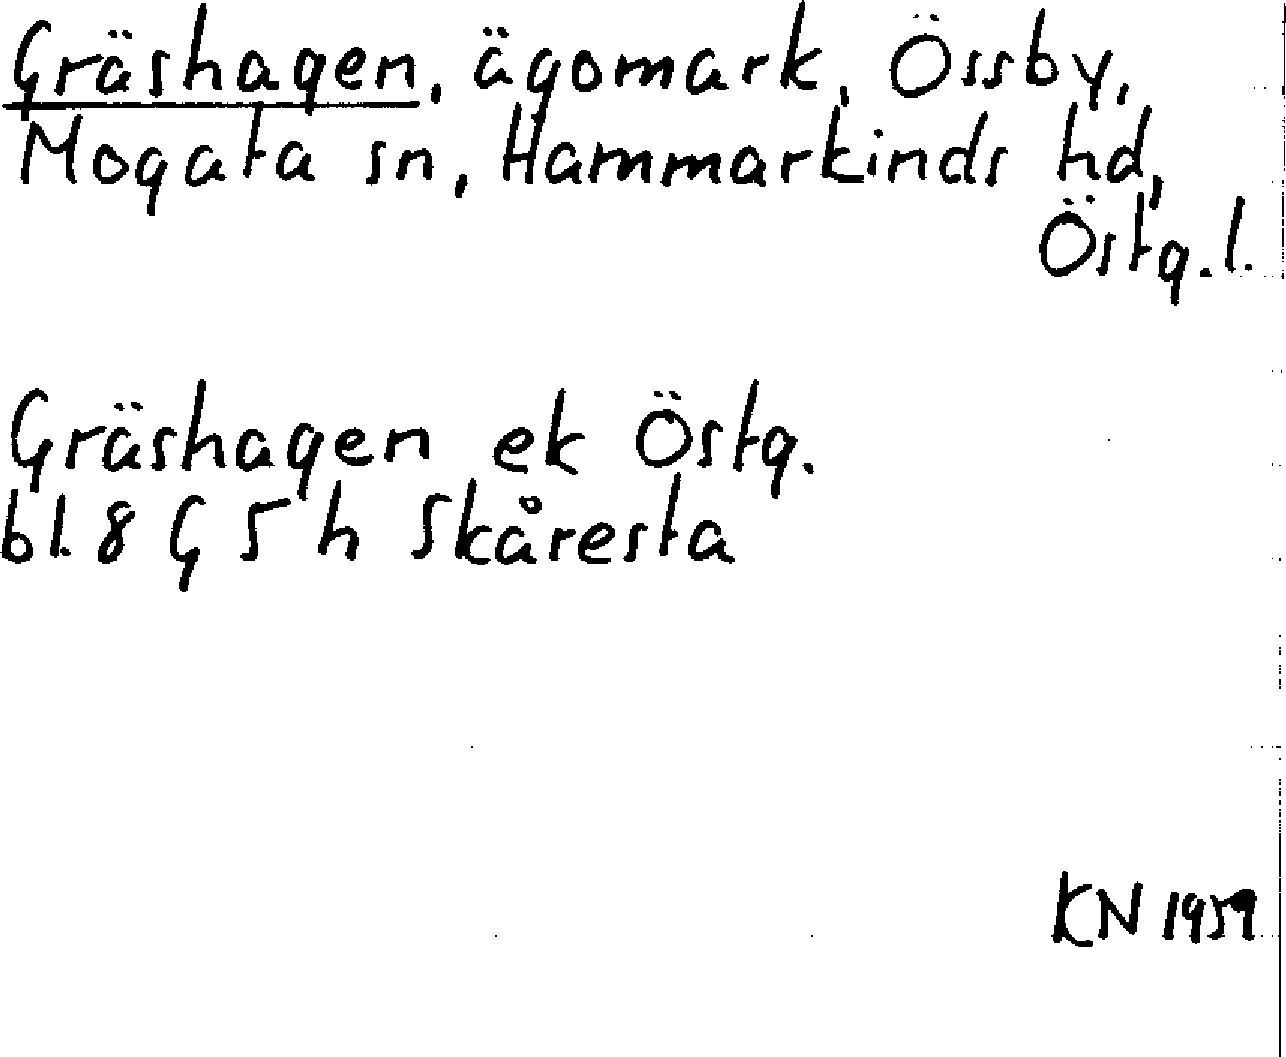 Gräshagen, ägomark, Össby,
Mogata sn, Hammarkinds hd,
Östg.l.
Gräshagen ek Östg.
bl. 8 G 5 h Skåresta
KN 1959